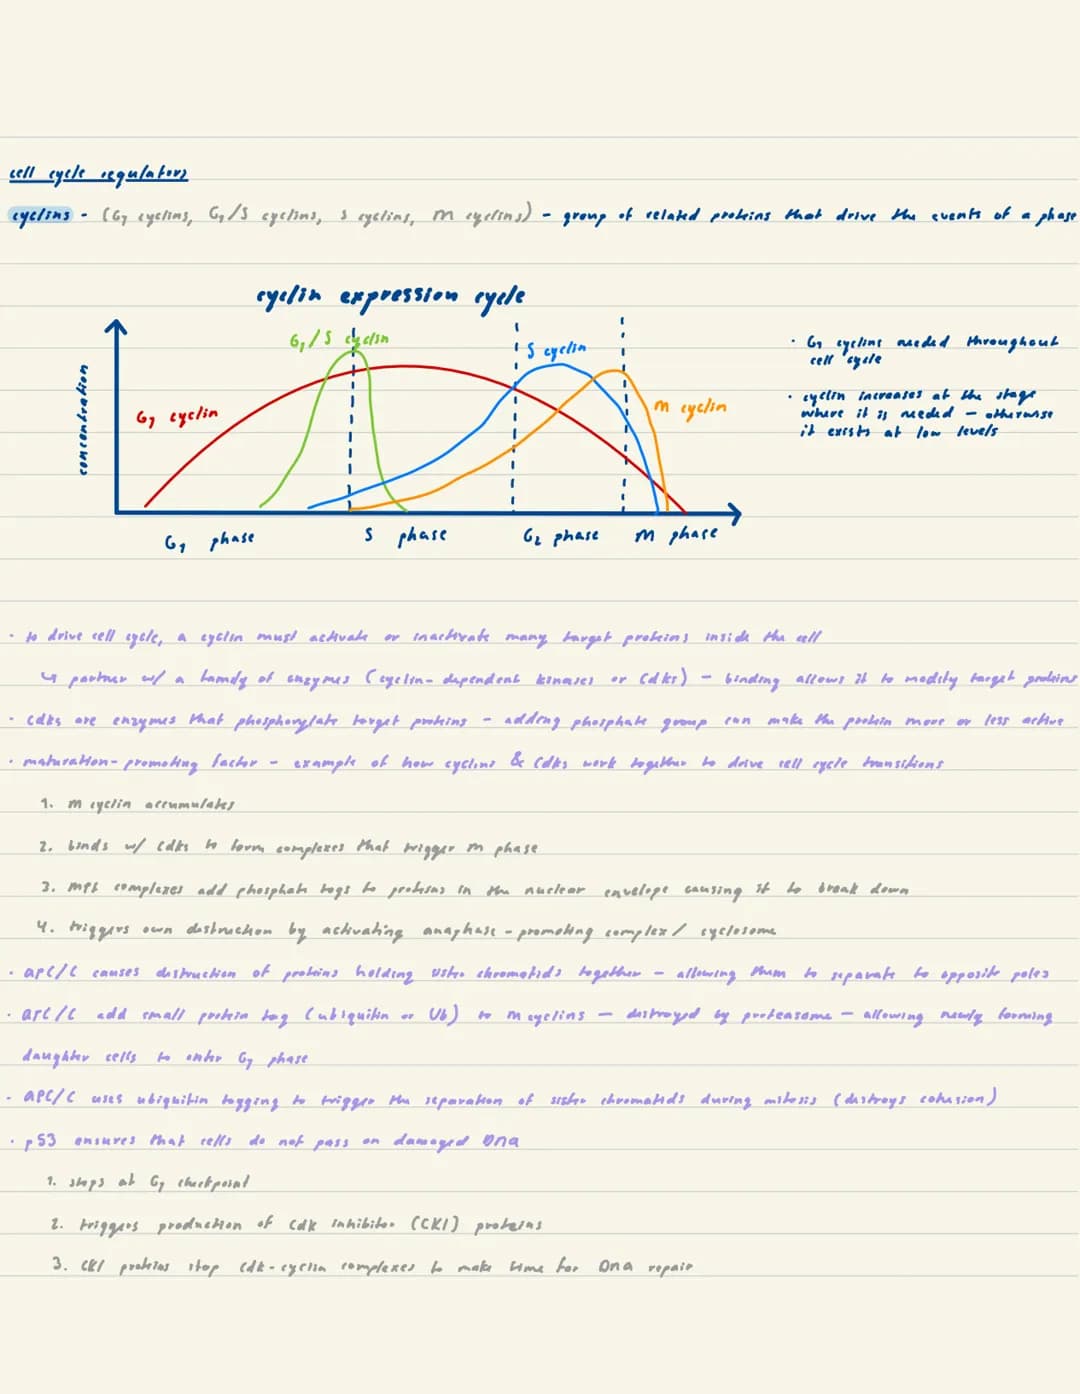 cell cycle regulators
cyclins - (G1 cyclins, G1/S cyclins, S cyclins, M cyclins) - group of related proteins that drive the events of a phase
cyclin expression cycle
G1/S cyclin
S cyclin
G1 cyclin
M cyclin
concentration
G1 phase
S phase
G2 phase
M phase
· G1 cyclins needed throughout
cell cycle
· cyclin increases at the stage
where it is needed - otherwise
it exists at low levels
· to drive cell cycle, a cyclin must activate or inactivate many target proteins inside the cell
↳ partner w/ a family of enzymes (cyclin-dependent kinases or Cdks) - binding allows it to modify target proteins
· Cdks are enzymes that phosphorylate target proteins - adding phosphate group can make the protein more or less active
· maturation-promoting factor - example of how cyclins & Cdks work together to drive cell cycle transitions
1. M cyclin accumulates
2. binds w/ Cdks to form complexes that trigger M phase
3. MPF complexes add phosphate tags to proteins in the nuclear envelope causing it to break down
4. triggers own destruction by activating anaphase-promoting complex/cyclosome
· APC/C causes destruction of proteins holding sister chromatids together - allowing them to separate to opposite poles
· APC/C add small protein tag (ubiquitin or Ub) to M cyclins - destroyed by proteasome - allowing newly forming
daughter cells to enter G1 phase
· APC/C uses ubiquitin tagging to trigger the separation of sister chromatids during mitosis (destroys cohesion)
· p53 ensures that cells do not pass on damaged DNA
1. stops at G1 checkpoint
2. triggers production of Cdk inhibitor (CKI) proteins
3. CKI proteins stop Cdk-cyclin complexes to make time for DNA repair